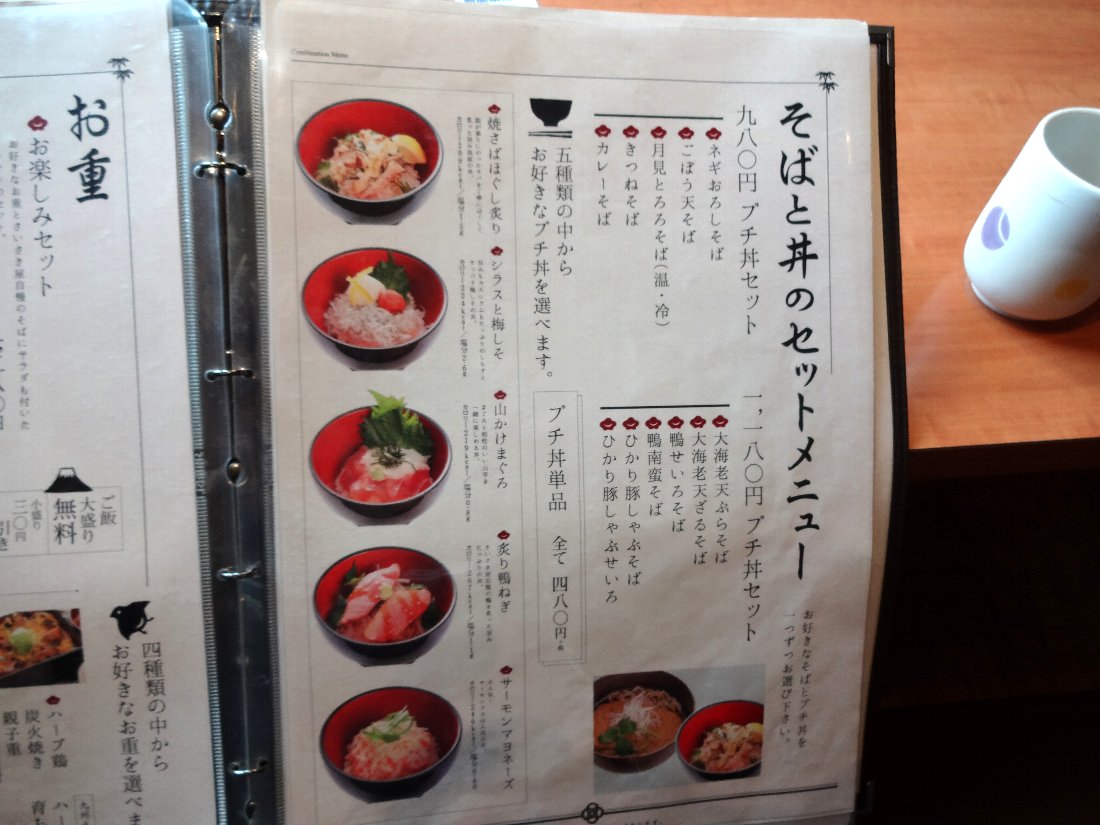 Combination Menu
そばと丼のセットメニュー
お好きなそばとプチ丼を
一つずつお選び下さい。
九八〇円 プチ丼セット
ネギおろしそば
ごぼう天そば
月見とろろそば(温・冷)
きつねそば
カレーそば
一,一八〇円 プチ丼セット
大海老天ぷらそば
大海老天ざるそば
鴨せいろそば
鴨南蛮そば
ひかり豚しゃぶそば
ひかり豚しゃぶせいろ
五種類の中から
お好きなプチ丼を選べます。
プチ丼単品 全て 四八〇円
焼さばほぐし炙り
シラスと梅しそ
山かけまぐろ
炙り鴨ねぎ
サーモンマヨネーズ
お重
お楽しみセット
お好きなお重とさいき屋自慢のそばにサラダも付いた
ご飯
大盛り
無料
小盛り
三〇円
引き
四種類の中から
お好きなお重を選べ
ハーブ鶏
炭火焼き
親子重